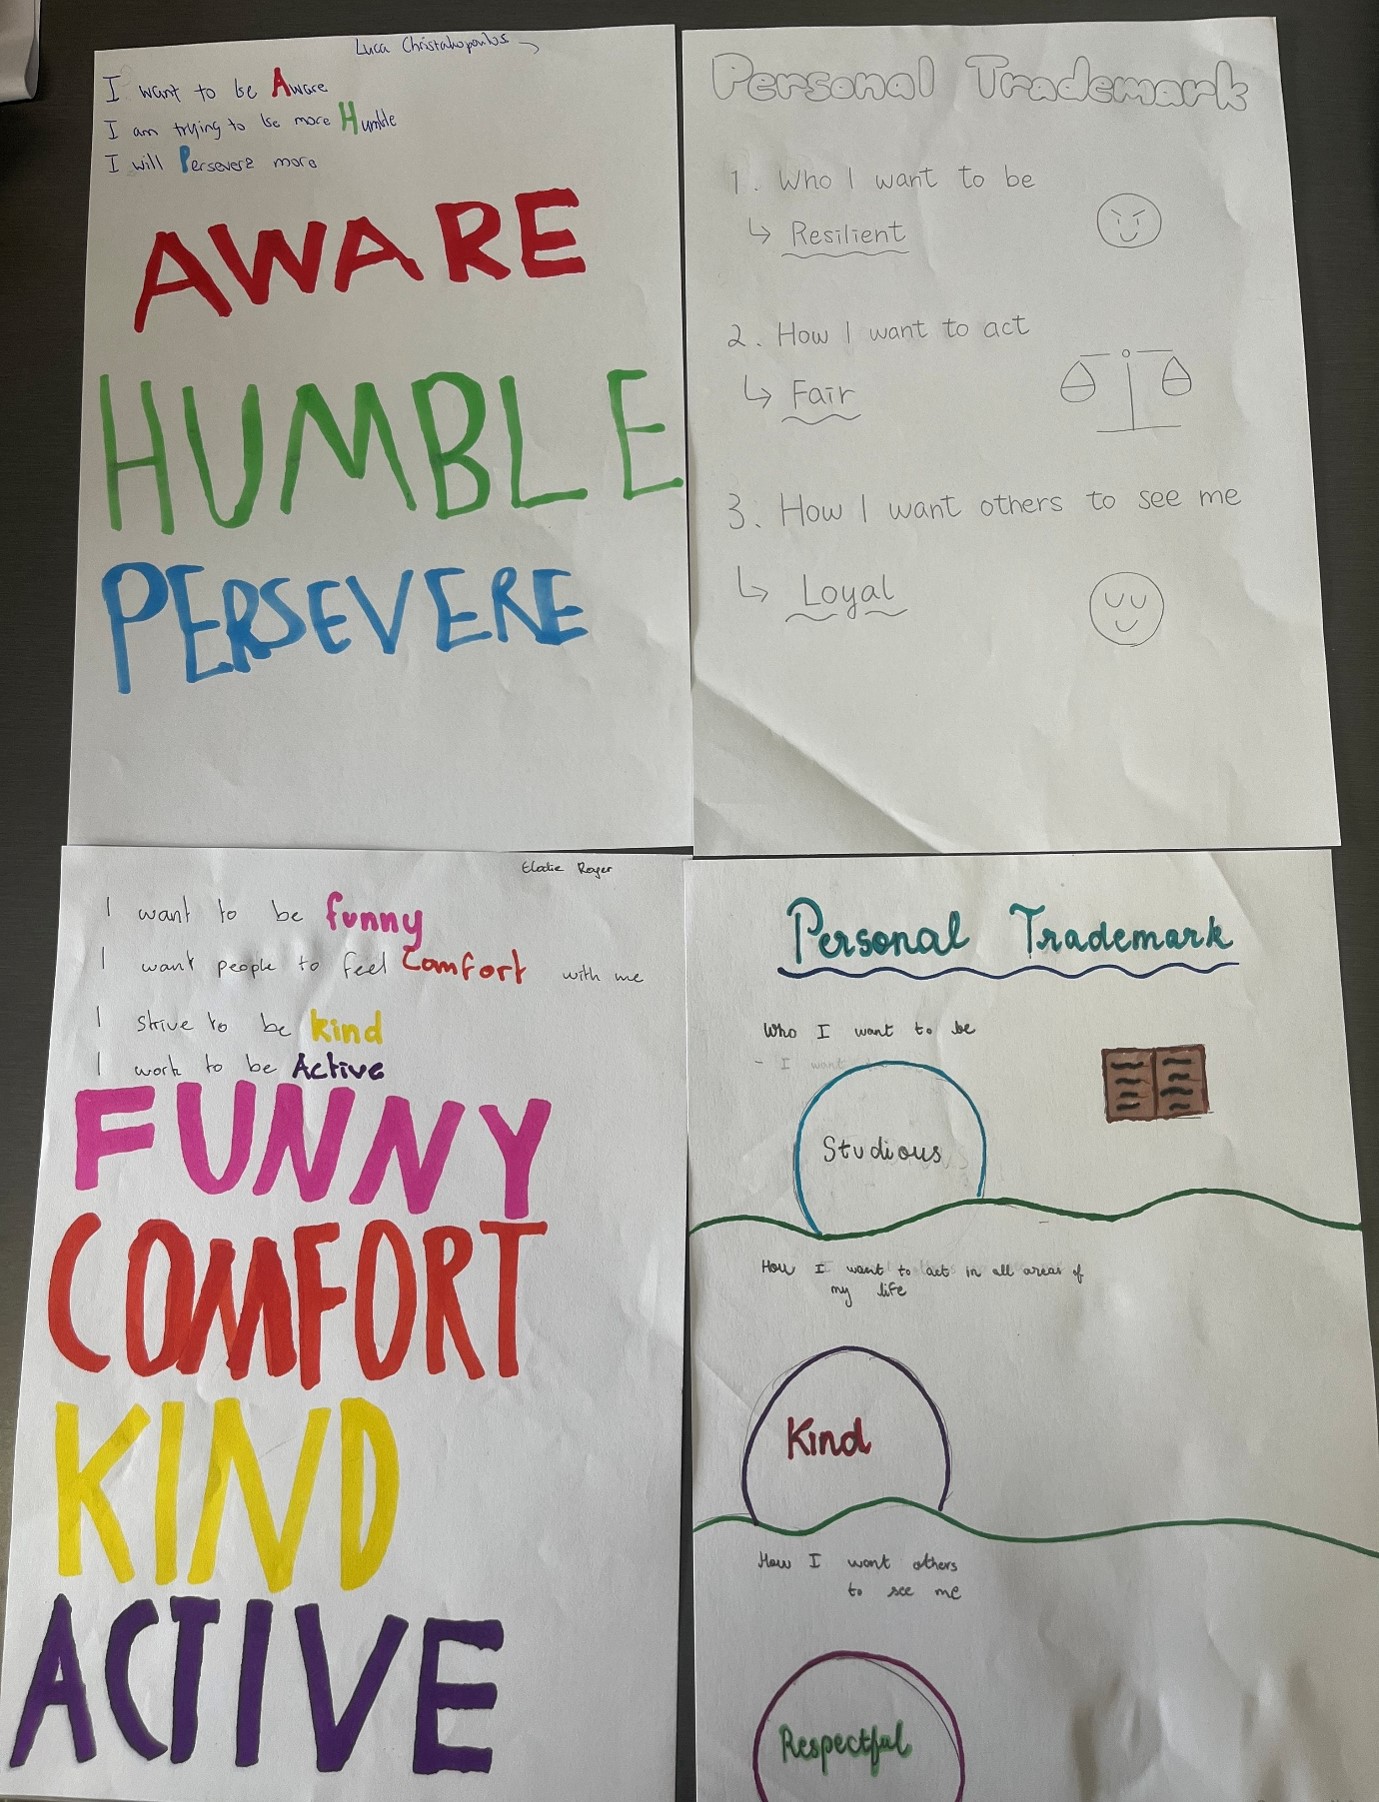 Luca Christakopoulos
I want to be Aware
I am trying to be more Humble
I will Persevere more
AWARE
HUMBLE
PERSEVERE
Personal Trademark
1. Who I want to be
↳ Resilient
2. How I want to act
↳ Fair
3. How I want others to see me
↳ Loyal
Elodie Roger
I want to be funny
I want people to feel Comfort with me
I strive to be kind
I work to be Active
FUNNY
COMFORT
KIND
ACTIVE
Personal Trademark
Who I want to be
- I want
Studious
How I want to act in all areas of
my life
Kind
How I want others
to see me
Respectful